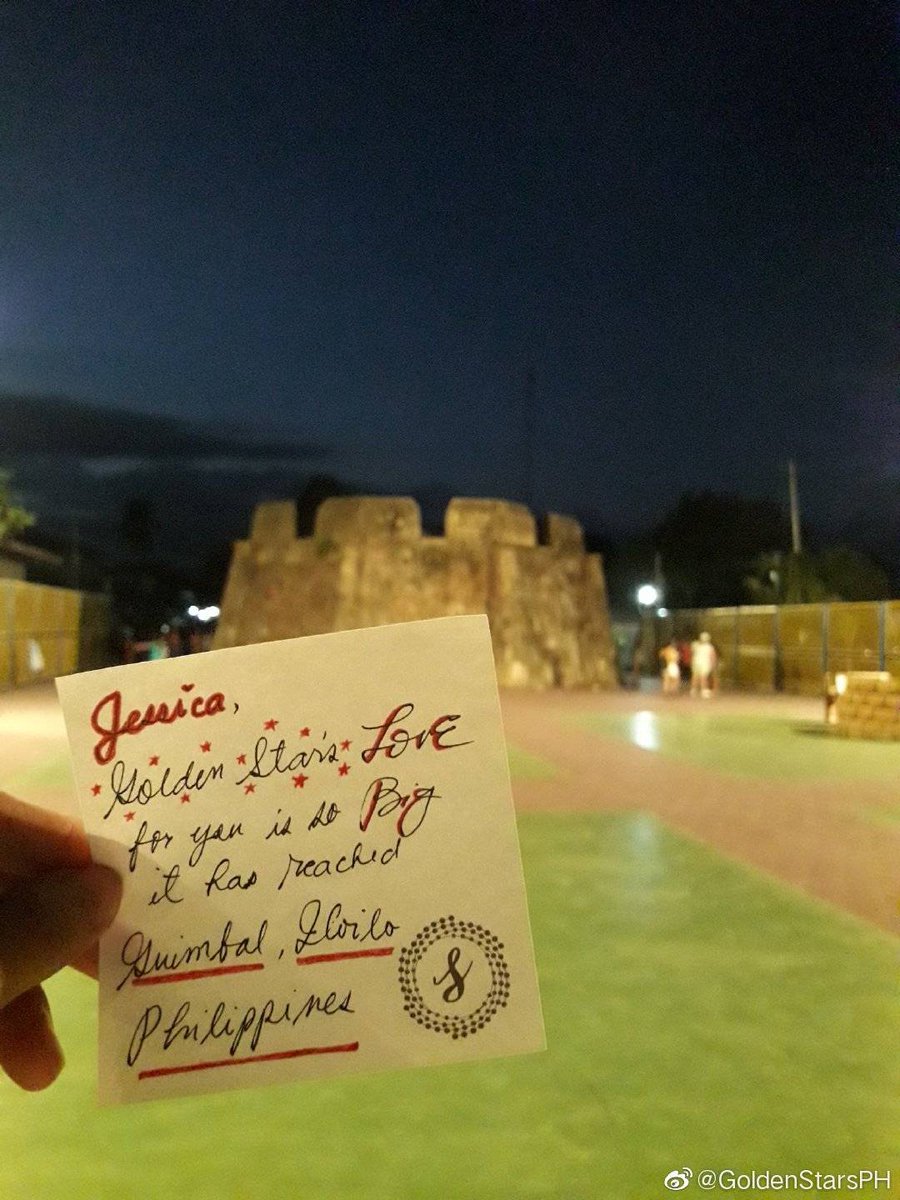 Jessica,
Golden Star's LOVE
for you is so Big
it has reached
Guimbal, Iloilo
Philippines
S
@GoldenStarsPH